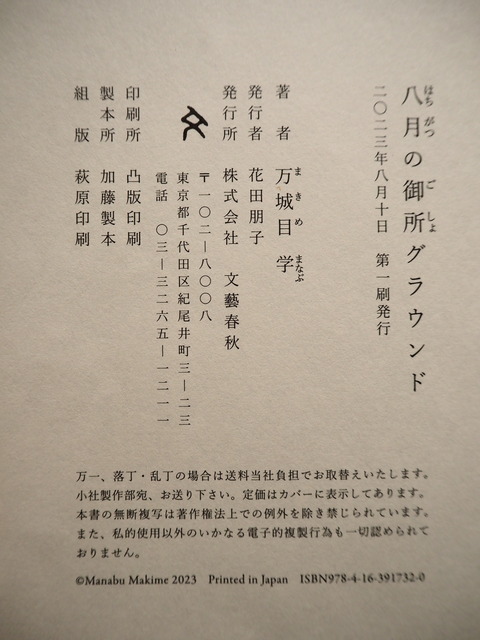 八月の御所グラウンド
はちがつ
ごしょ
二〇二三年八月十日　第一刷発行
著　者　万城目　学
まきめ　まなぶ
発行者　花田朋子
発行所　株式会社　文藝春秋
〒一〇二―八〇〇八
東京都千代田区紀尾井町三―二三
電話　〇三―三二六五―一二一一
印刷所　凸版印刷
製本所　加藤製本
組　版　萩原印刷
万一、落丁・乱丁の場合は送料当社負担でお取替えいたします。
小社製作部宛、お送り下さい。定価はカバーに表示してあります。
本書の無断複写は著作権法上での例外を除き禁じられています。
また、私的使用以外のいかなる電子的複製行為も一切認められて
おりません。
©Manabu Makime 2023　Printed in Japan　ISBN978-4-16-391732-0